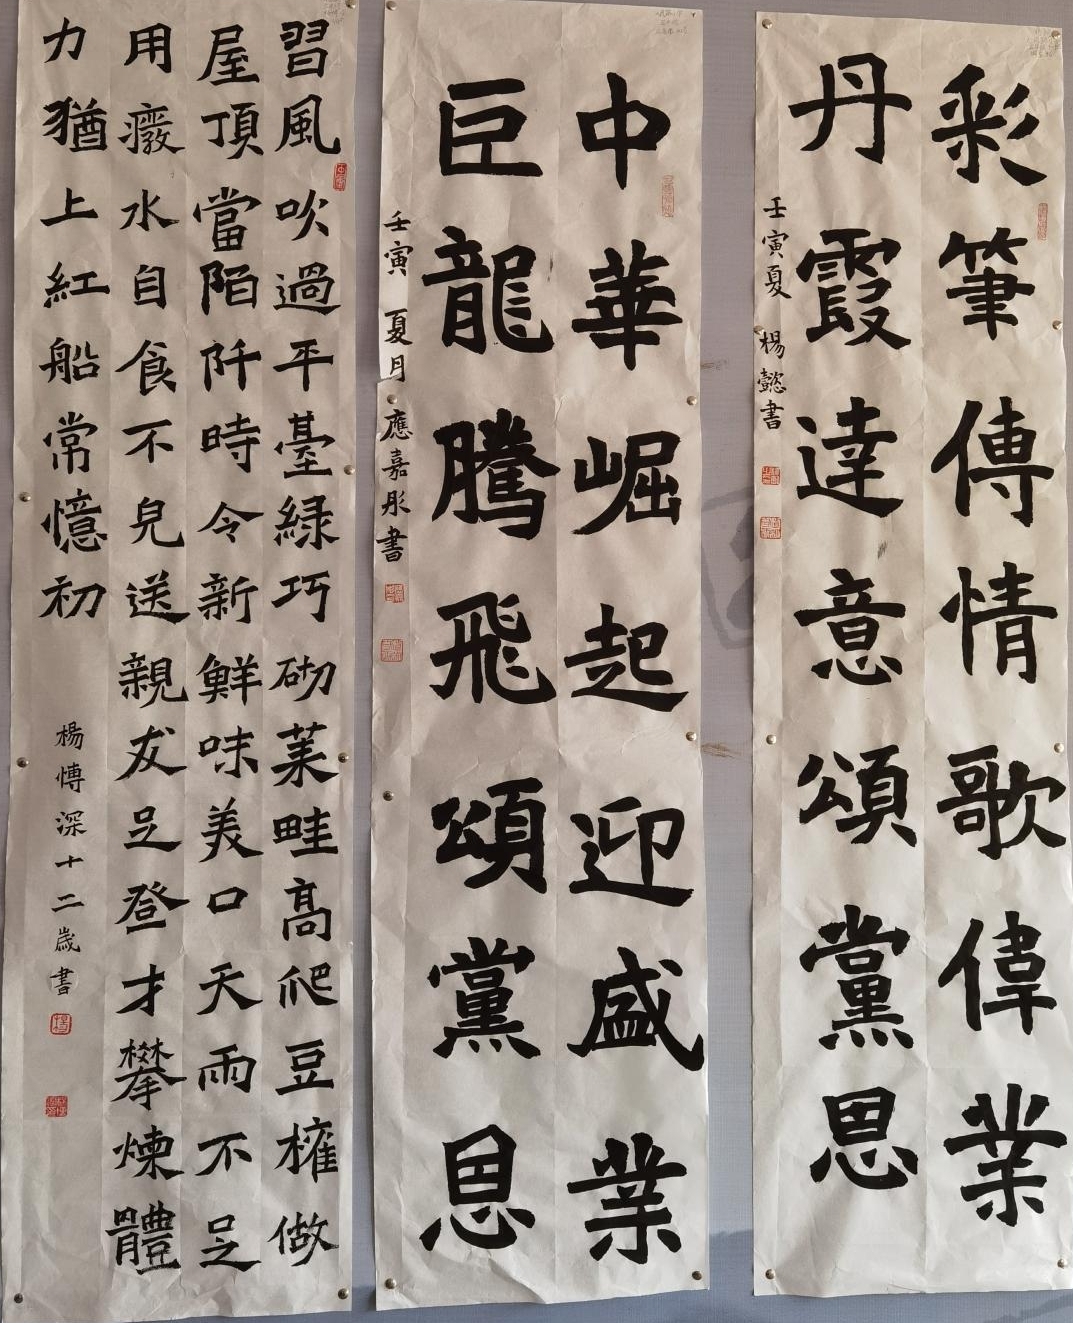 彩筆傳情歌偉業
丹霞達意頌黨恩
壬寅夏 楊懿書
中華崛起迎盛業
巨龍騰飛頌黨恩
壬寅 夏月 應嘉彤書
習風吹過平臺緑巧砌菜畦高爬豆做
屋頂當陌阡時令新鮮味美口天雨不足
用癈水自食不送親友足登才攀煉體
力猶上紅船常憶初
楊愽深十二歲書